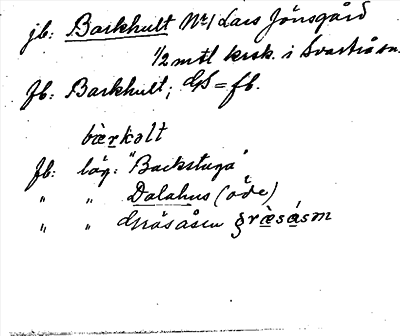 jb: Barkhult № 1 Lars Jönsgård
1/2 mtl krsk. i Svartrå sn.
fb: Barkhult; GS = fb.
bærkǝlt
fb: läg: "Backstuga"
" " Dalahus (öde)
" " Gräsåsen græ̀sǻsm